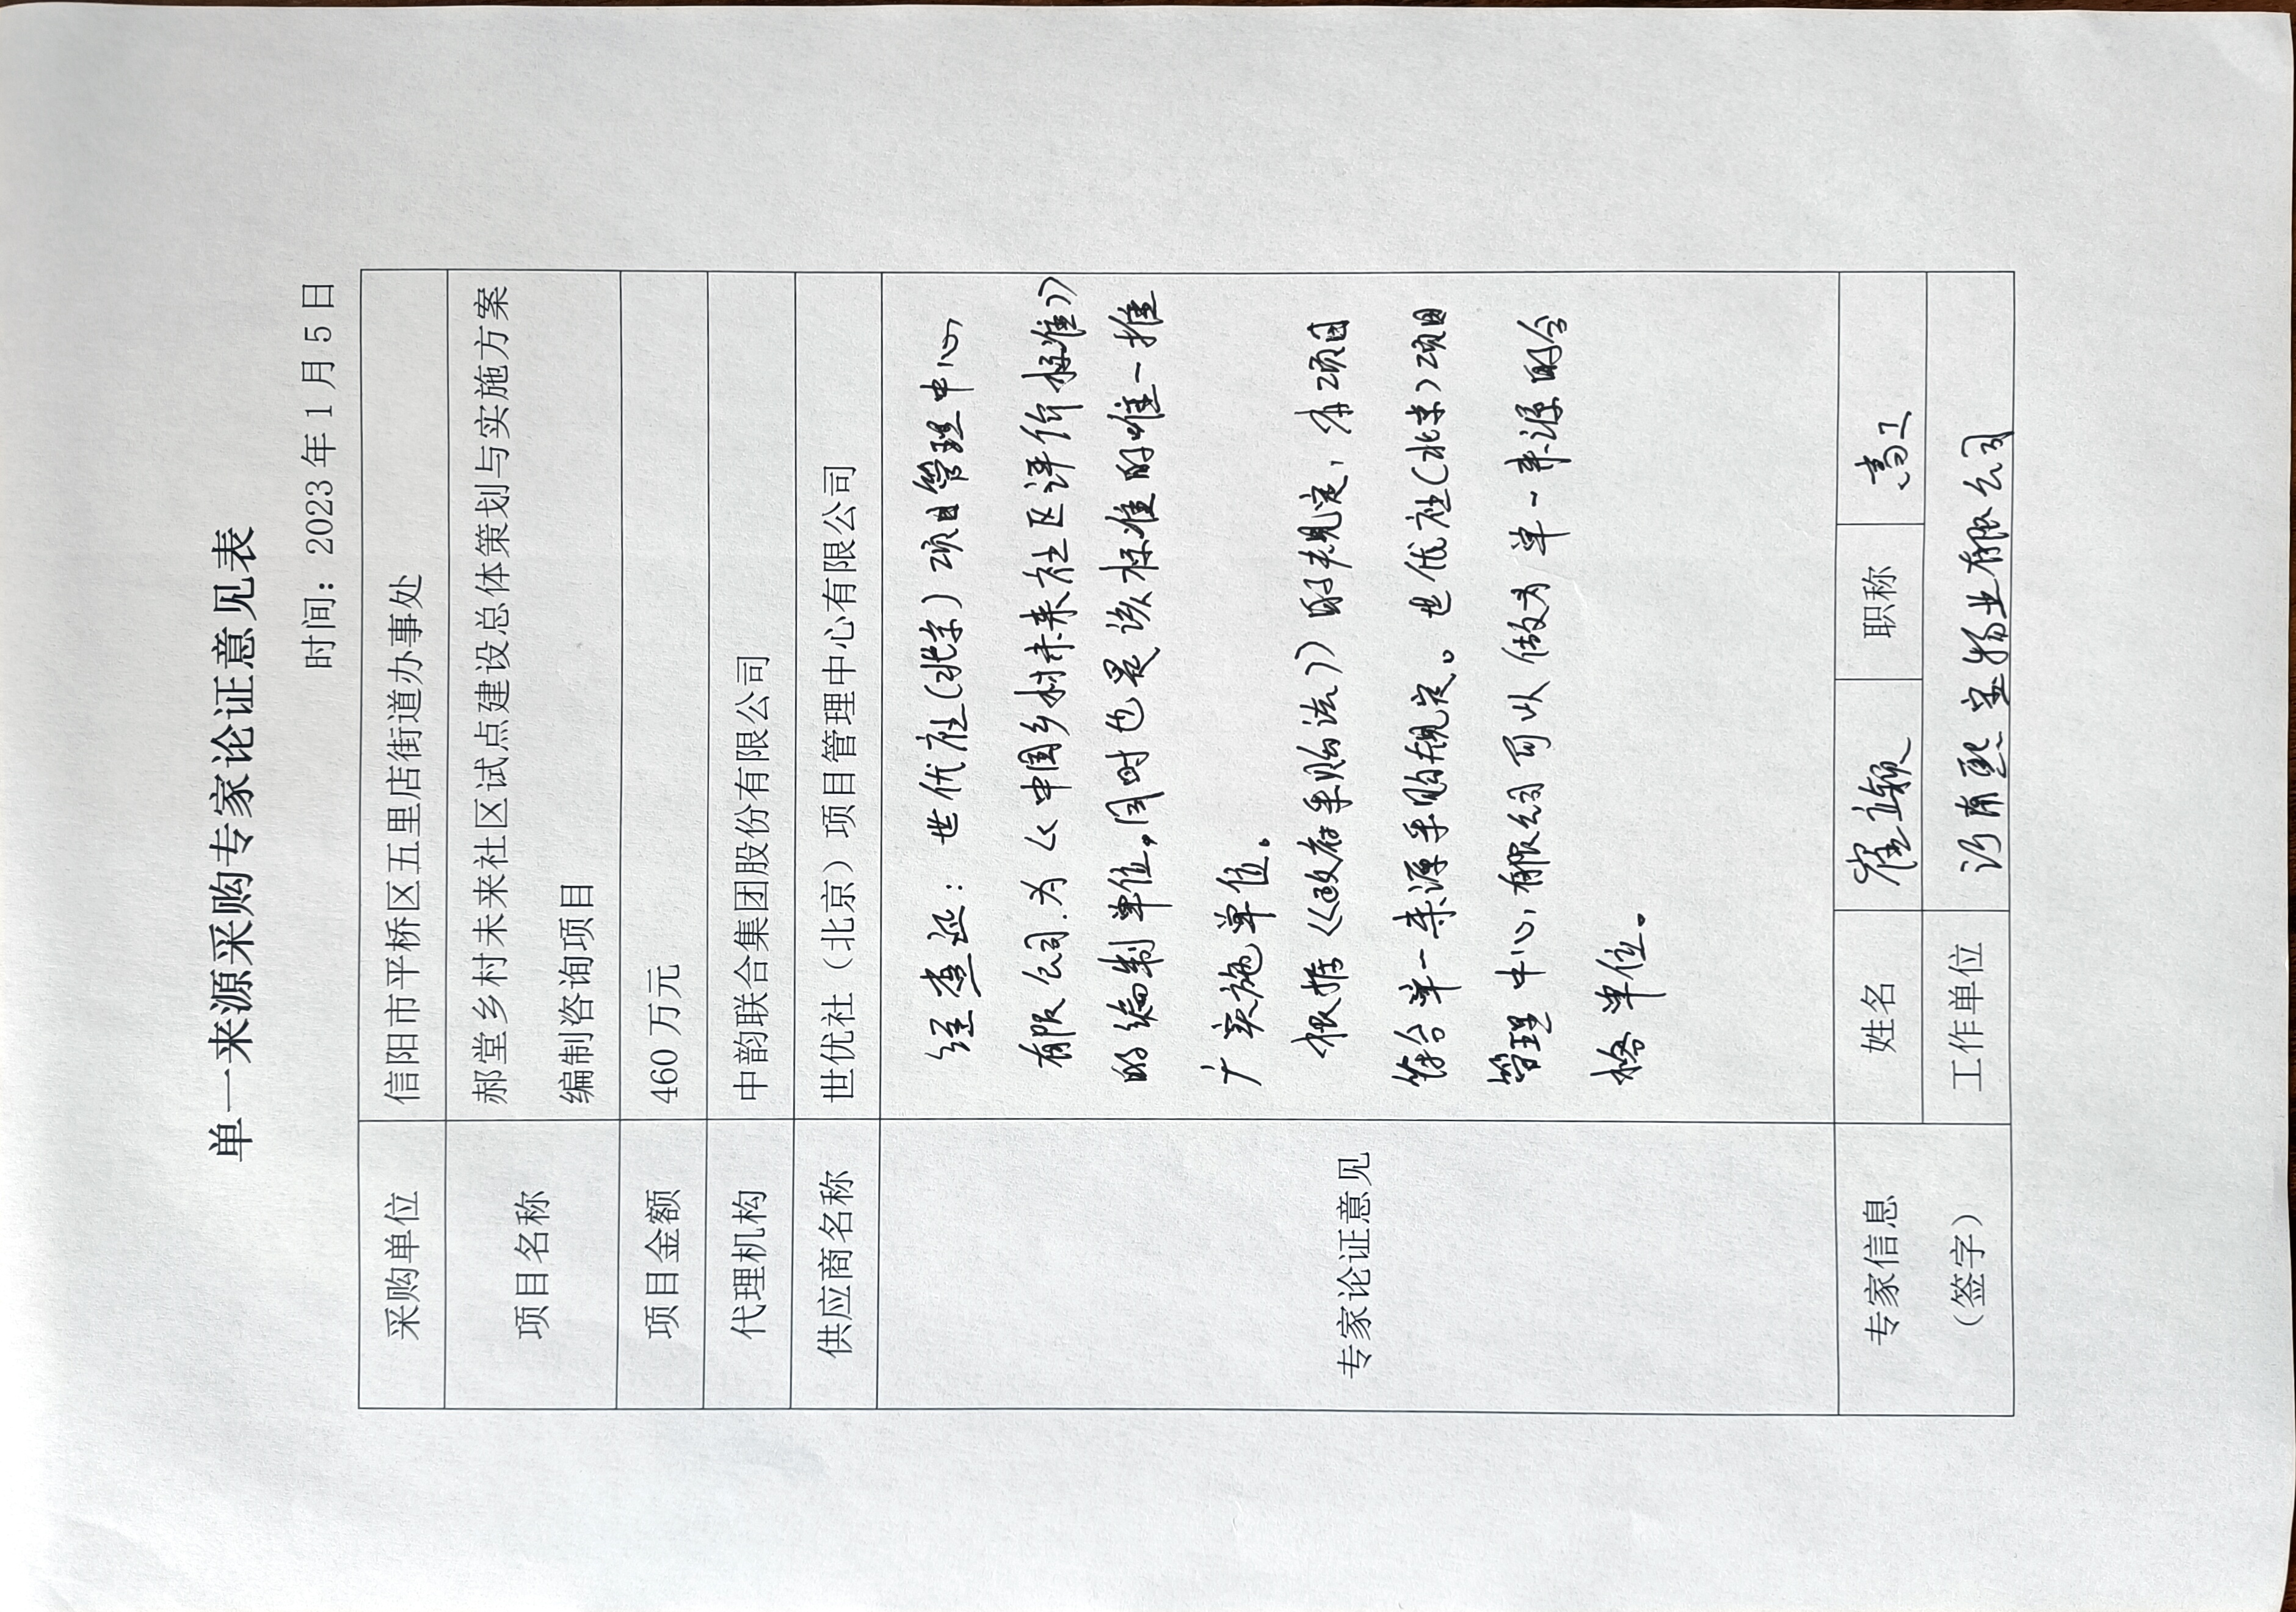 单一来源采购专家论证意见表
时间：2023 年 1 月 5 日
采购单位 信阳市平桥区五里店街道办事处
项目名称 郝堂乡村未来社区试点建设总体策划与实施方案
编制咨询项目
项目金额 460 万元
代理机构 中韵联合集团股份有限公司
供应商名称 世优社（北京）项目管理中心有限公司
专家论证意见
经查证：世优社(北京)项目管理中心
有限公司.为《中国乡村未来社区评价标准》
的编制单位,同时也是该标准的唯一推
广实施单位。
根据《政府采购法》的规定，本项目
符合单一来源采购规定。世优社(北京)项目
管理中心有限公司可以做为单一来源的合
格单位。
专家信息
（签字）
姓名 崔立颖 职称 高工
工作单位 河南熙宝物业有限公司